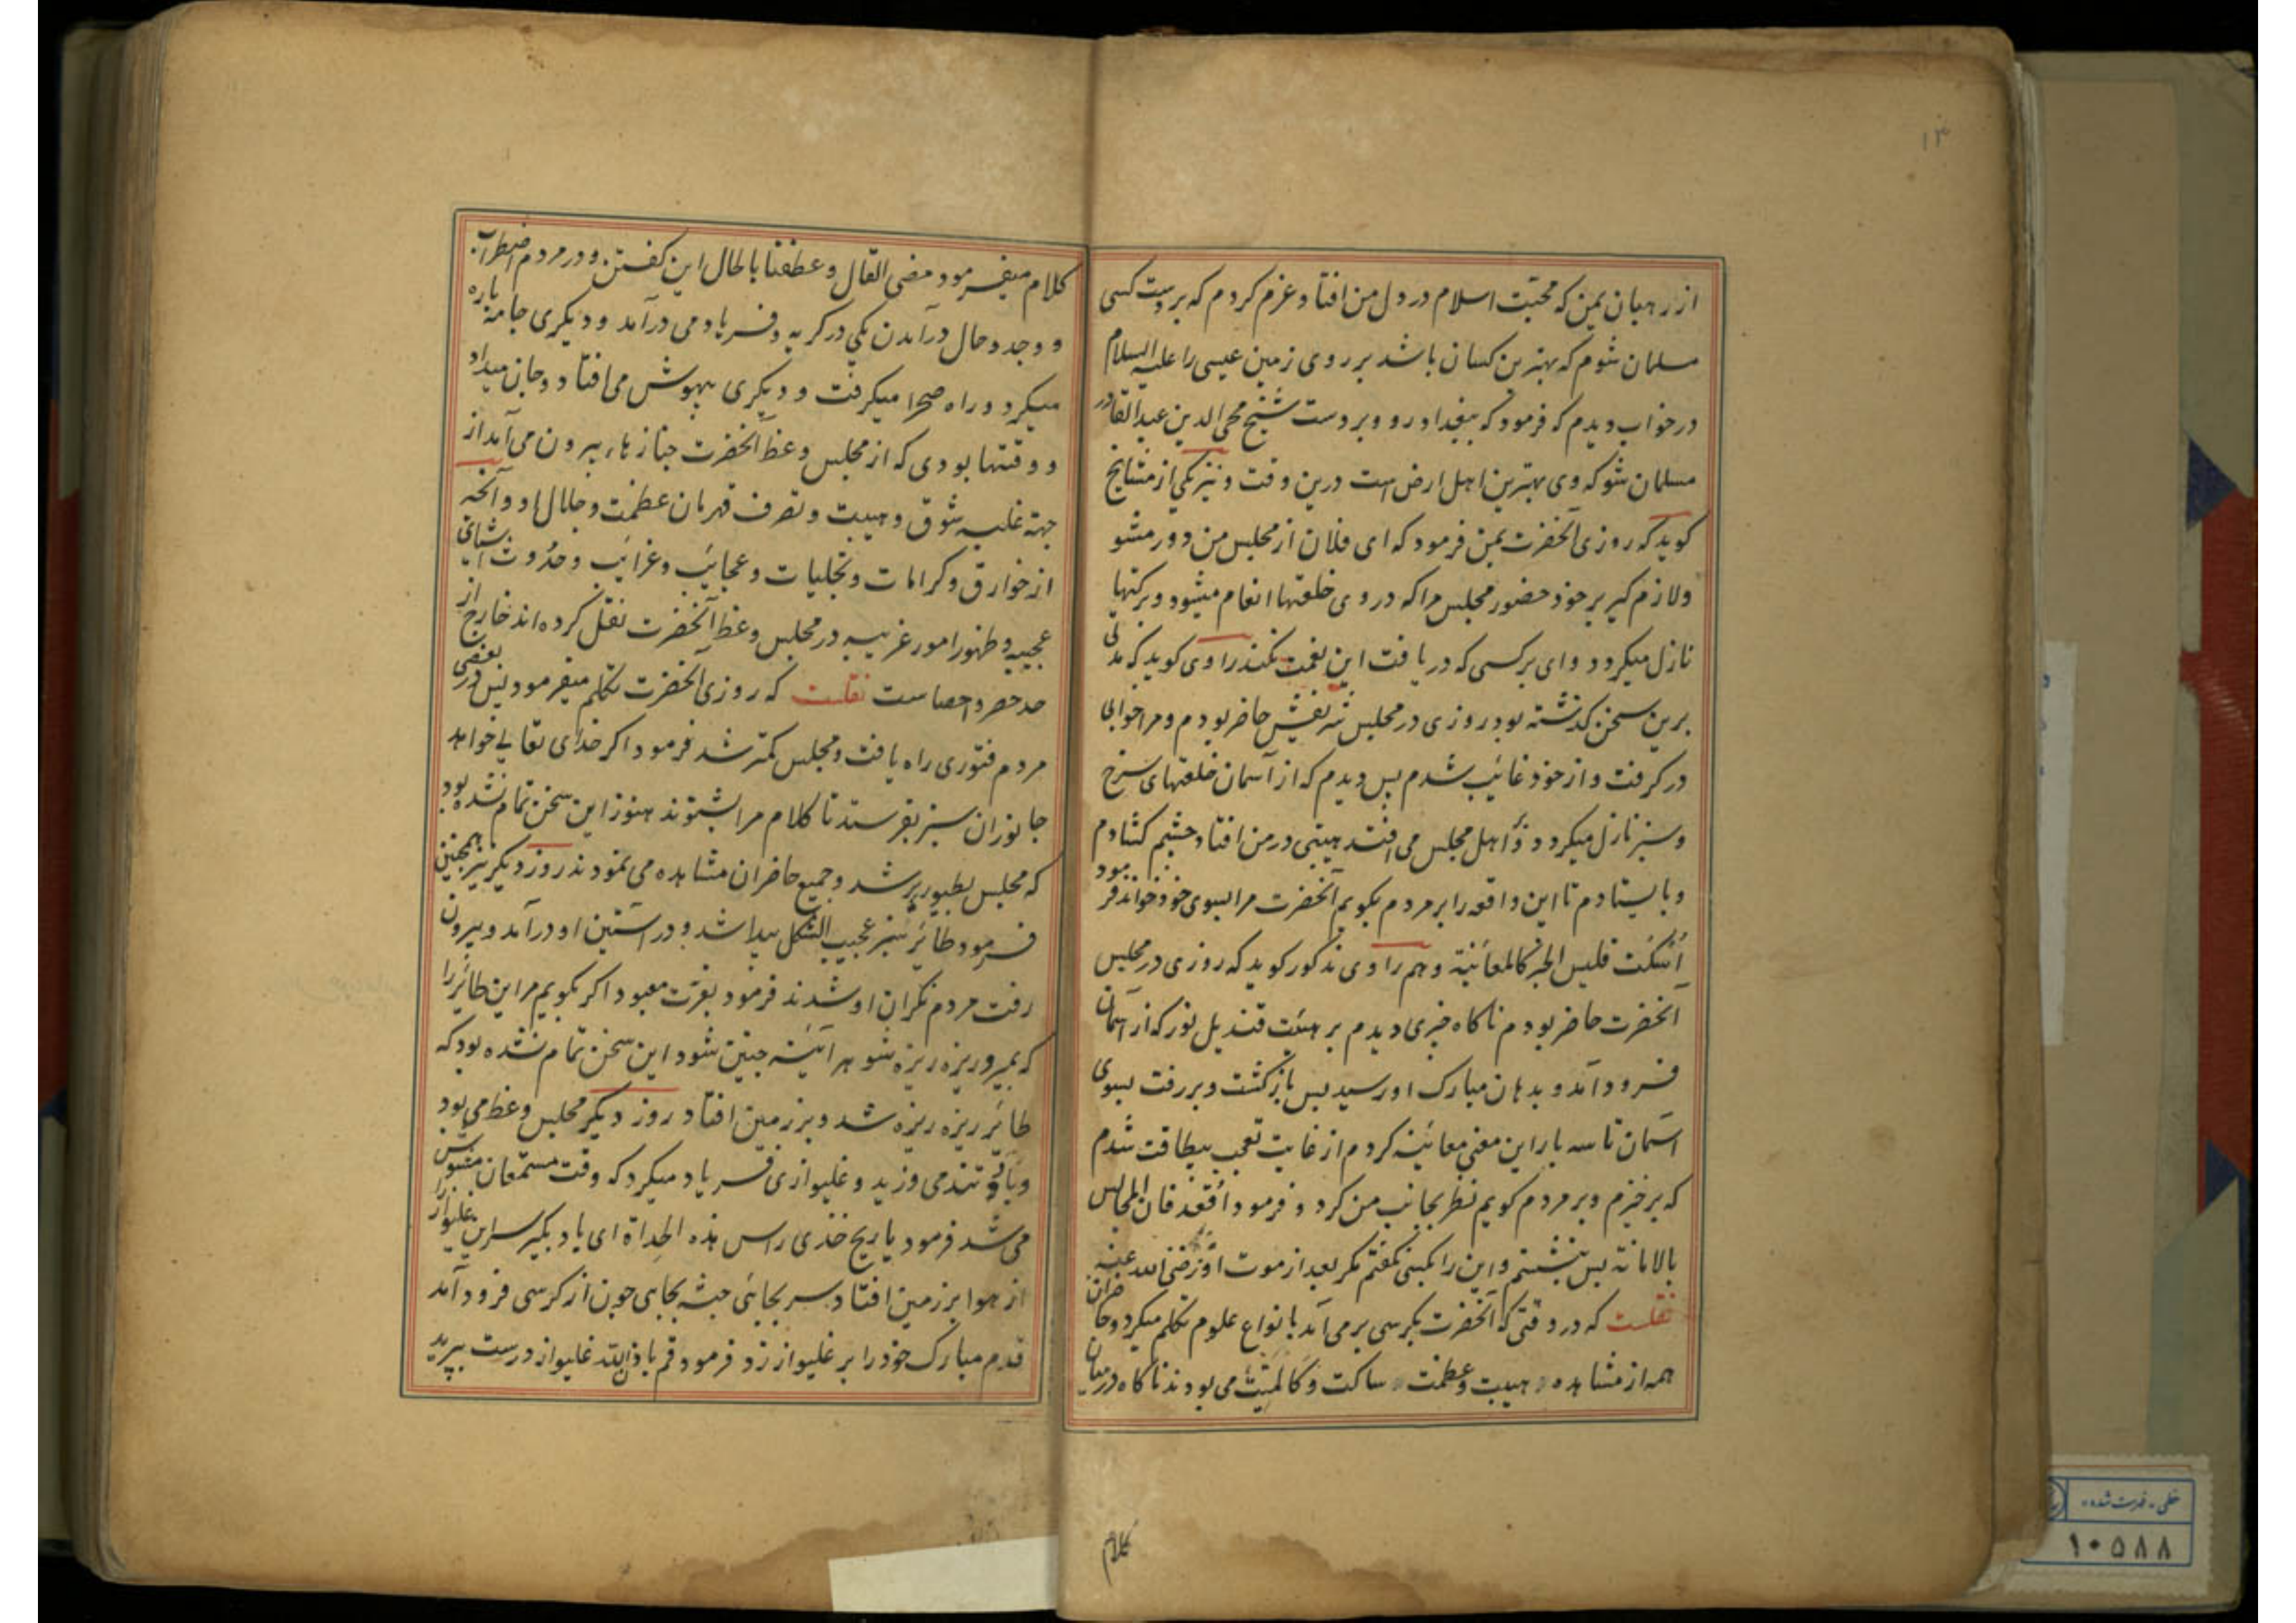 ۱۳
از رهبان یمن که محبّت اسلام در دل من افتاد و عزم کردم که بر دست کسی
مسلمان شوم که بهترین کسان باشد بر روی زمین عیسی را علیه السلام
در خواب دیدم که فرمود که ببغداد رو و بر دست شیخ محی الدین عبدالقادر
مسلمان شو که وی بهترین اهل ارض است درین وقت و نیز یکی از مشایخ
کوید که روزی آنحضرت بمن فرمود که ای فلان از مجلس من دور مشو
و لازم کیر بر خود حضور مجلس مرا که در وی خلعتها انعام میشود و برکتها
نازل میکردد و وای بر کسی که دریافت این نعمت نکند راوی کوید که مدتی
برین سخن کذشته بود روزی در مجلس شریفش حاضر بودم و مرا خوابی
در کرفت و از خود غائب شدم پس دیدم که از آسمان خلعتهای سرخ
و سبز نازل میکردد و بر اهل مجلس می افتد هیبتی در من افتاد چشم کشادم
و بایستادم تا این واقعه را بر مردم بکویم آنحضرت مرا بسوی خود خواند فرمود
اُسکت فلیس الخبر کالمعاینة و هم راوی مذکور کوید که روزی در مجلس
آنحضرت حاضر بودم ناکاه چیزی دیدم بر هیئت قندیل نور که از آسمان
فرود آمد و بدهان مبارک او رسید پس بازکشت و بر رفت بسوی
آسمان تا سه بار این معنی معاینه کردم از غایت تعجب بیطاقت شدم
که برخیزم و بر مردم کویم نظر بجانب من کرد و فرمود اُقعد فان المجالس
بالامانة پس بنشستم و این را بکسی نکفتم مکر بعد از موت او رضی الله عنه
نقلست که در وقتی که آنحضرت بکرسی بر می آمد بانواع علوم تکلم میکرد و حاضران
همه از مشاهده هیبت و عظمت ساکت و کالمیّت می بودند ناکاه در میان
کلام
کلام میفرمود مضی القال و عطفنا بالحال این کفتن و در مردم اضطراب
و وجد و حال درآمدن یکی در کریه و فریاد می درآمد و دیکری جامه پاره
میکرد و راه صحرا میکرفت و دیکری بیهوش می افتاد و جان میداد
و وقتها بودی که از مجلس وعظ آنحضرت جنازها، بیرون می آمد از
جهة غلبه شوق و هیبت و تصرف قهرمان عظمت و جلال او و آنچه
از خوارق و کرامات و تجلیات و عجائب و غرائب و حدوث اشیای
عجیبه و ظهور امور غریبه در مجلس وعظ آنحضرت نقل کرده اند خارج از
حد حصر و احصا ست نقلست که روزی آنحضرت تکلم میفرمود پس در بعضی
مردم فتوری راه یافت و مجلس کمتر شد فرمود اکر خدای تعالی خواهد
جانوران سبز بفرستد تا کلام مرا بشنوند هنوز این سخن تمام نشده بود
که مجلس بطیور پر شد و جمیع حاضران مشاهده می نمودند روز دیکر نیز همچنین
فرمود طائر سبز عجیب الشکل پیدا شد و در آستین او درآمد و بیرون
رفت مردم نکران او شدند فرمود بعزت معبود اکر بکویم مر این طائر را
که بمیر و ریزه ریزه شو هر آئینه چنین شود این سخن تمام نشده بود که
طائر ریزه ریزه شد و بر زمین افتاد روز دیکر مجلس وعظ می بود
و باد تند می وزید و غلیوازی فریاد میکرد که وقت مستمعان مشوش
می شد فرمود یا ریح خذی راس هذه الحداة ای باد بکیر سر این غلیواز را
از هوا بر زمین افتاد سر بجائی جثه بجایی چون از کرسی فرود آمد
قدم مبارک خود را بر غلیواز زد و فرمود قم باذن الله غلیواز درست بپرید
خطی - فهرست شده
۱۰۵۸۸